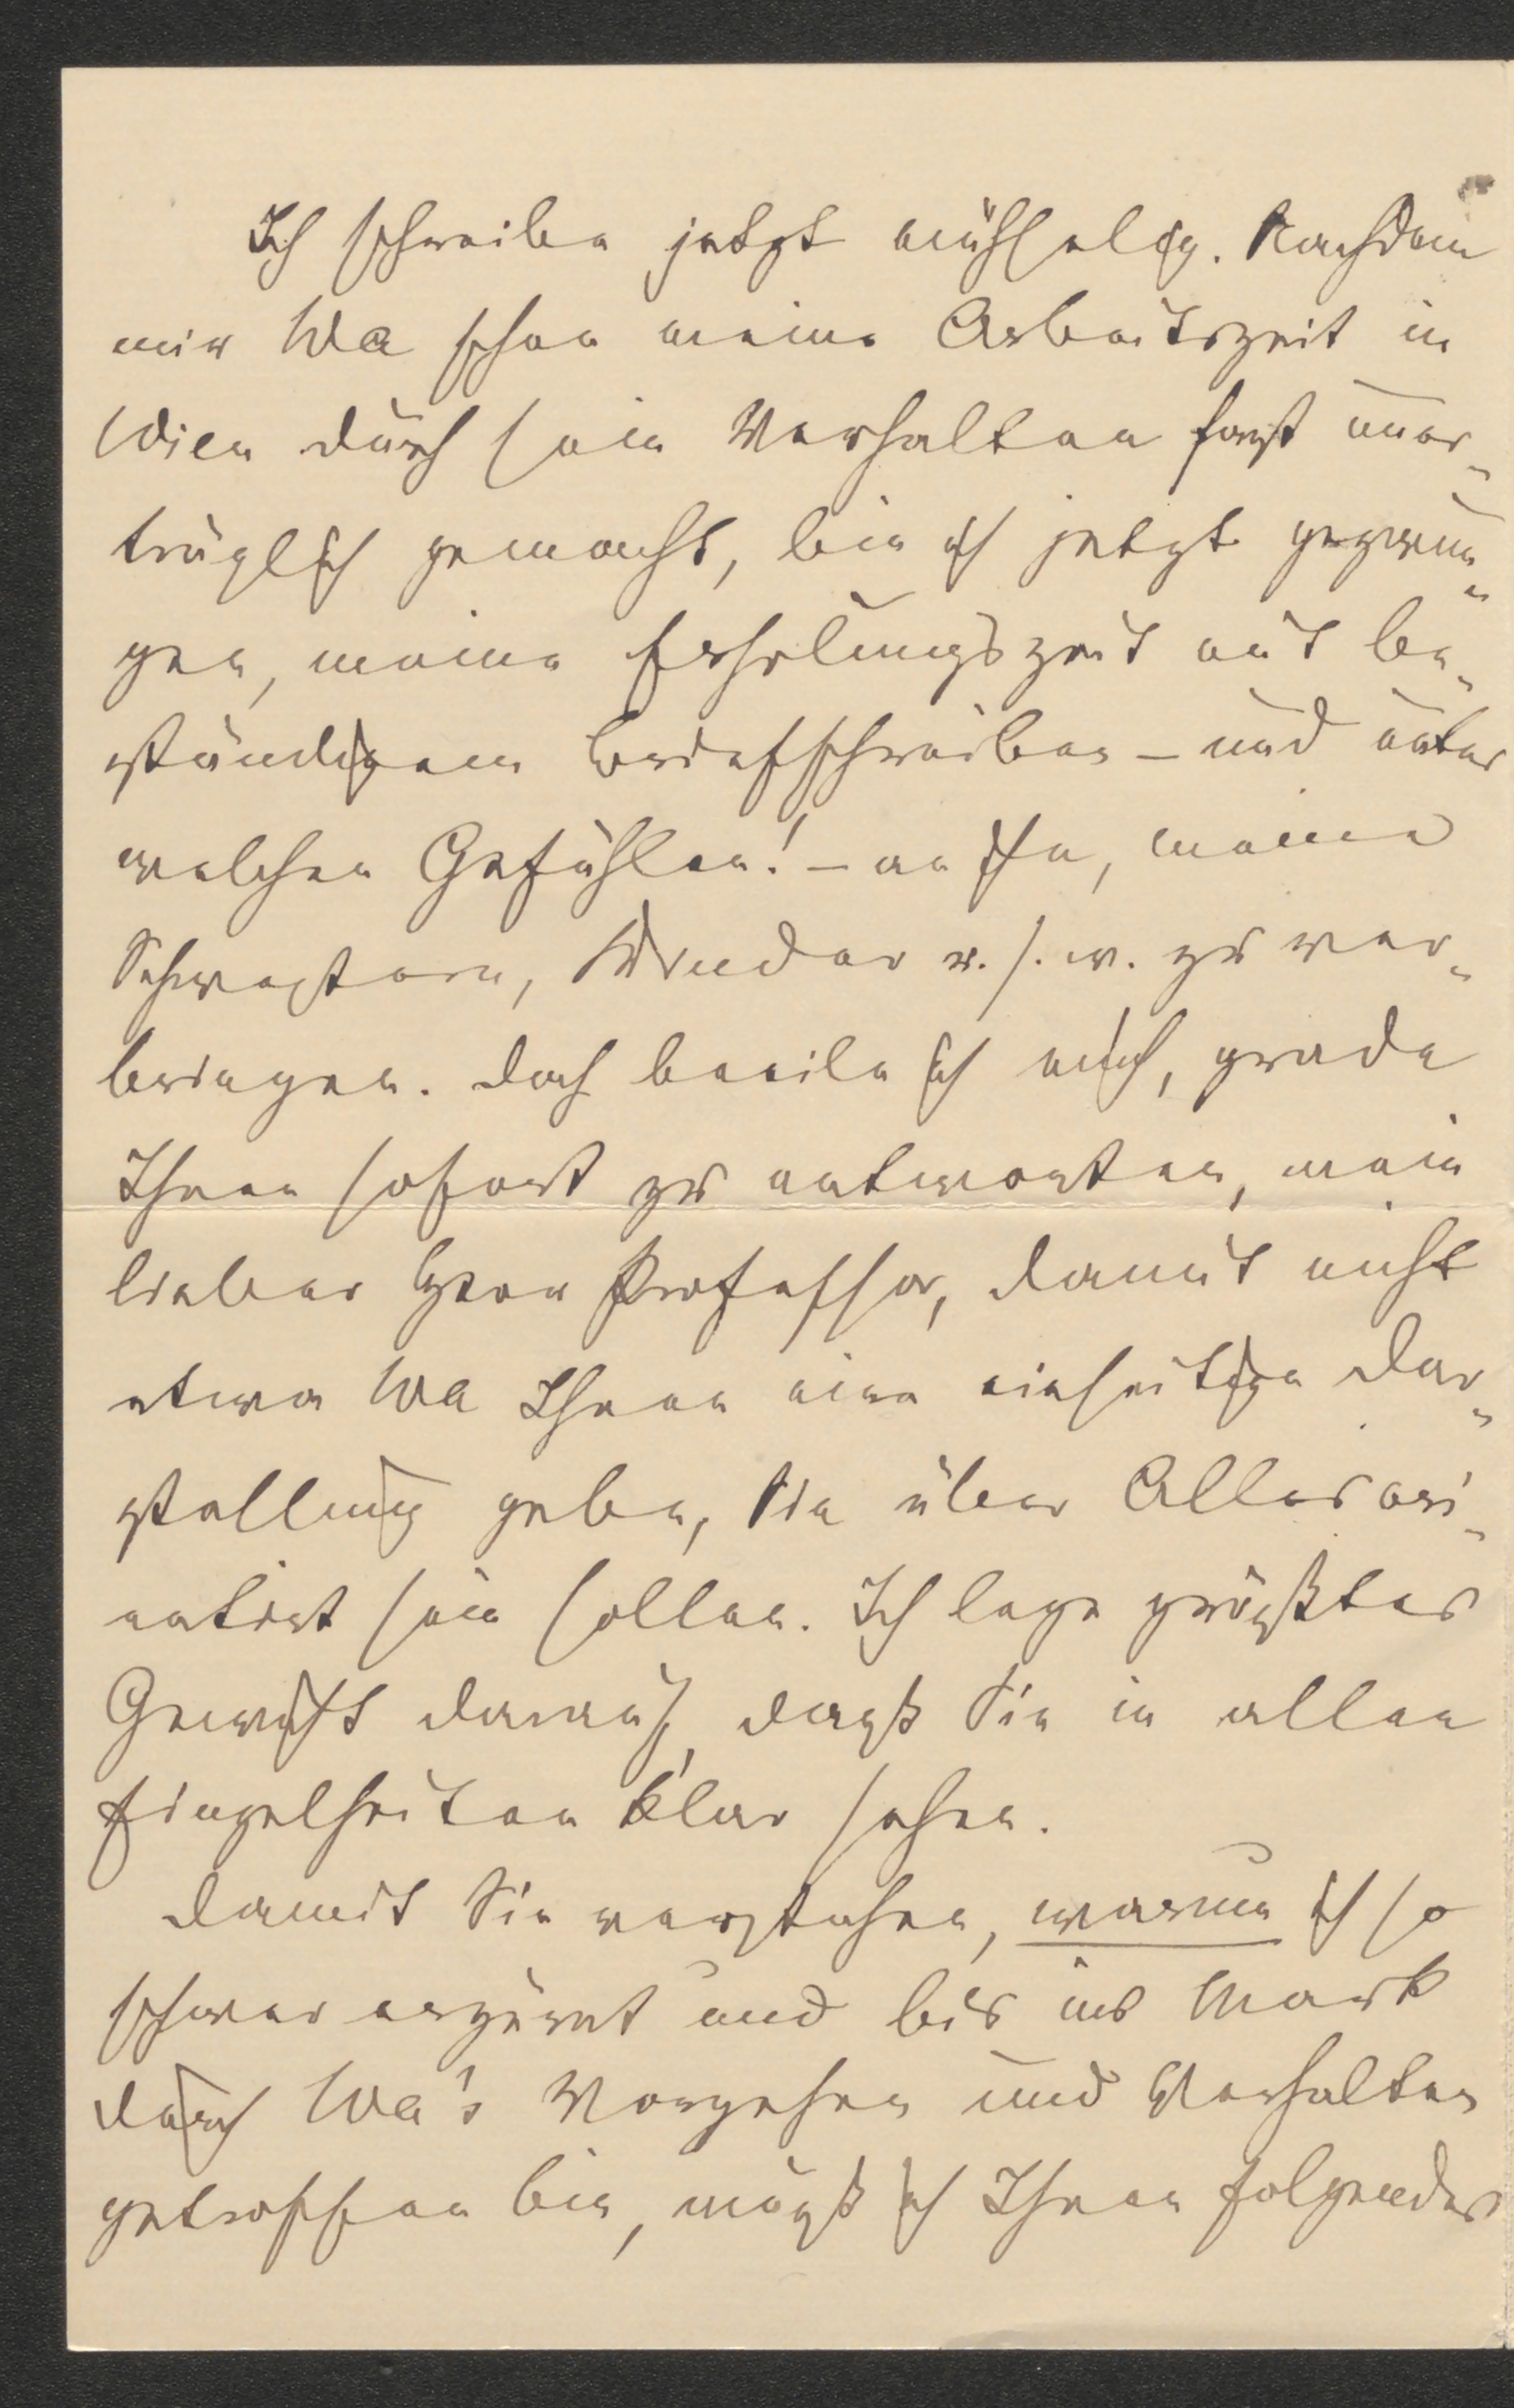 Ich schreibe jetzt mühselig. Nachdem
mir Wa schon meine Arbeitszeit in
Wien durch sein Verhalten fast uner-
träglich gemacht, bin ich jetzt gezwun-
gen, meine Erholungszeit mit be-
ständigem Briefschreiben – und unter
welchen Gefühlen! – an Sie, meine
Schwestern, Bruder u. s. w. zu ver-
bringen. Doch beeile ich mich, grade
Ihnen sofort zu antworten, mein
lieber Herr Professor, damit nicht
etwa Wa Ihnen eine einseitige Dar-
stellung gebe, Sie über Alles ori-
entirt sein sollen. Ich lege größtes
Gewicht darauf, daß Sie in allen
Einzelheiten klar sehen.
Damit Sie verstehen, warum ich so
schwer erzürnt und bis ins Mark
durch Wa's Vorgehen und Verhalten
getroffen bin, muß ich Ihnen folgendes